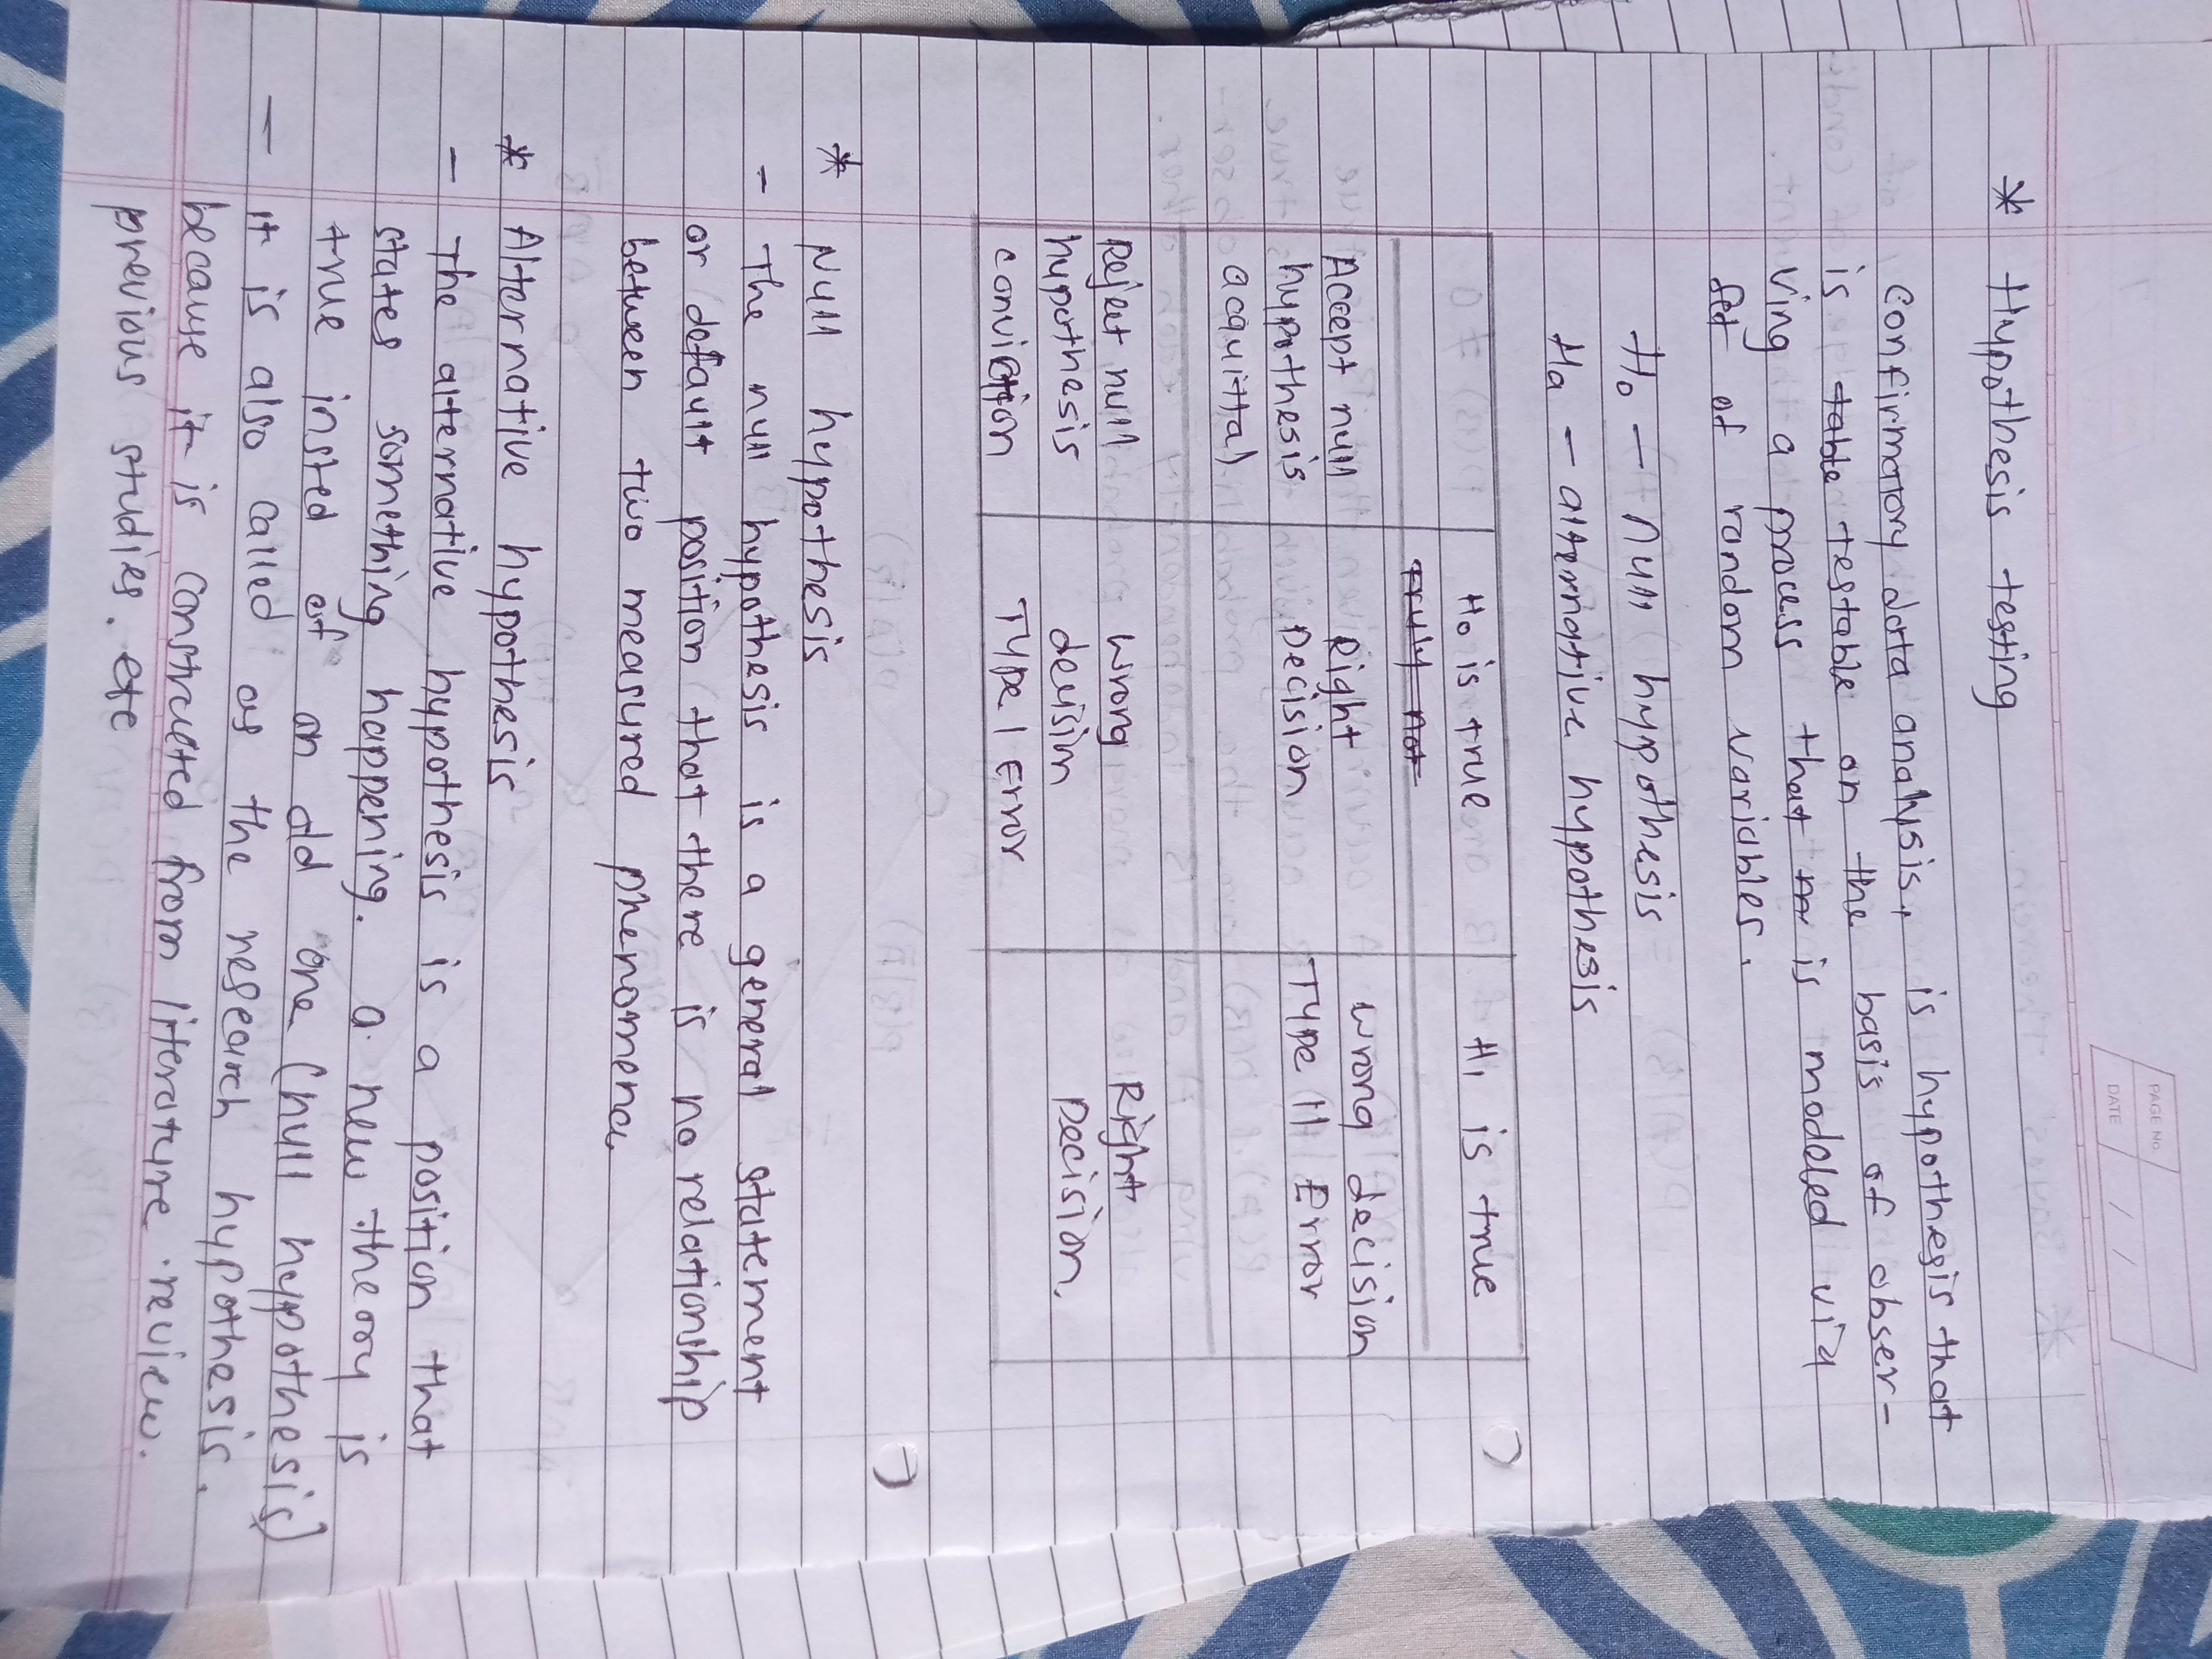 PAGE No.
DATE / /
* Hypothesis testing
confirmatory data analysis, is hypothesis that
is table testable on the basis of obser-
ving a process that m is modeled via
set of random variables.
H0 - null hypothesis
Ha - alternative hypothesis
H0 is true H1 is true
Truly not
Accept null Right wrong decision
hypothesis Decision Type II Error
acquittal
Reject null wrong Right
hypothesis decision Decision.
conviction Type I Error
* Null hypothesis
- The null hypothesis is a general statement
or default position that there is no relationship
between two measured phenomena
* Alternative hypothesis
- The alternative hypothesis is a position that
states something happening. a new theory is
true insted of an old one (null hypothesis)
- it is also called as the research hypothesis.
because it is constructed from literature review.
previous studies. etc